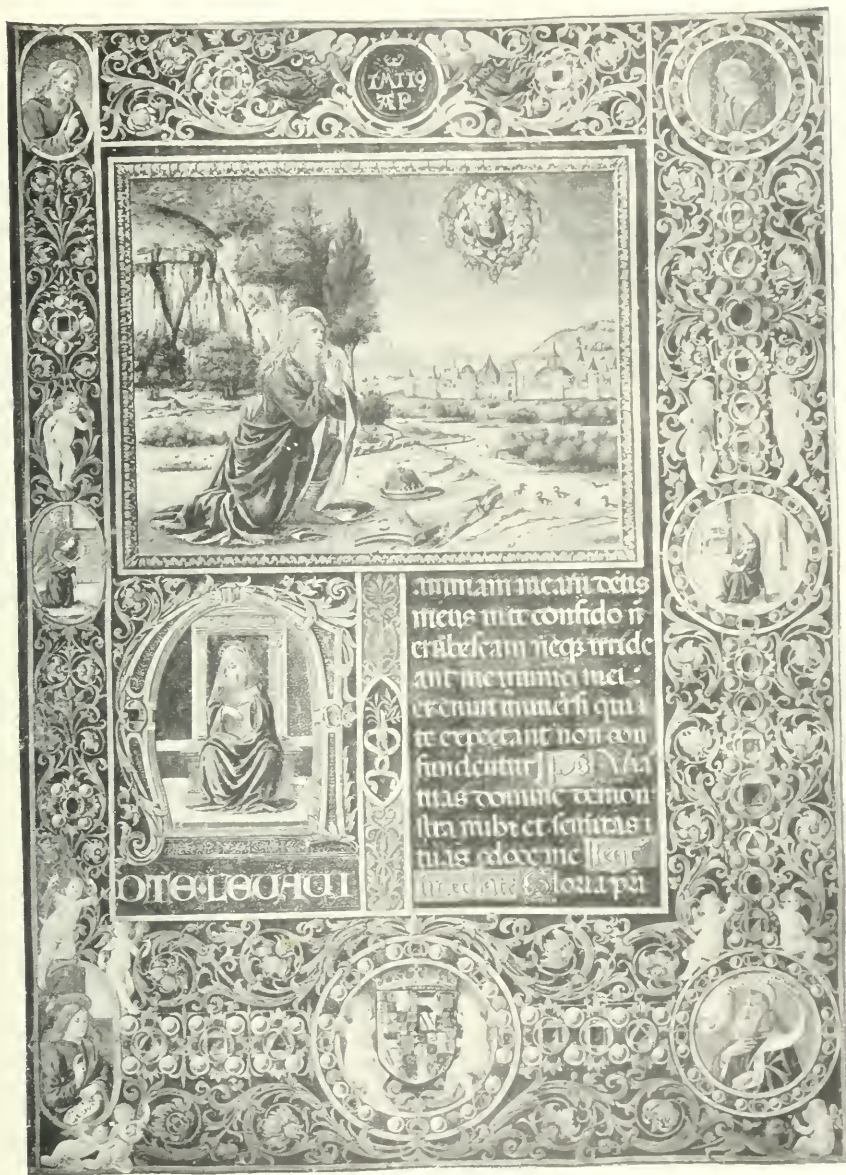 A
DTE·LEVAUI
animam meam deus
meus in te confido n̄
erubescam neqꝫ irride
ant me inimici mei :
etenim uniuersi qui
te expectant non con
fundentur Vias
tuas domine demon
stra mihi et semitas
tuas edoce me
Gloria